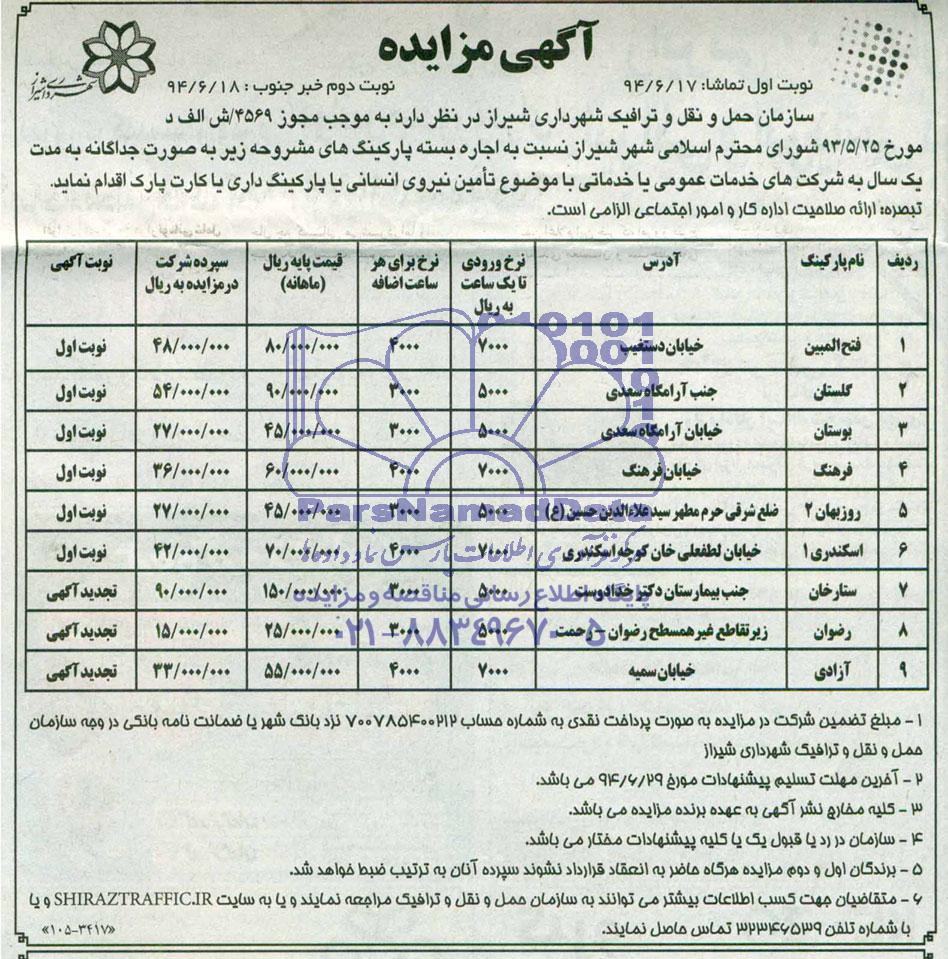 آگهی مزایده
شهرداری شیراز
نوبت اول تماشا: ۹۴/۶/۱۷
نوبت دوم خبر جنوب: ۹۴/۶/۱۸
سازمان حمل و نقل و ترافیک شهرداری شیراز در نظر دارد به موجب مجوز ۴۵۶۹/ش الف د
مورخ ۹۳/۵/۲۵ شورای محترم اسلامی شهر شیراز نسبت به اجاره بسته پارکینگ های مشروحه زیر به صورت جداگانه به مدت
یک سال به شرکت های خدمات عمومی یا خدماتی با موضوع تأمین نیروی انسانی یا پارکینگ داری یا کارت پارک اقدام نماید.
تبصره: ارائه صلاحیت اداره کار و امور اجتماعی الزامی است.
ردیف نام پارکینگ آدرس نرخ ورودی تا یک ساعت به ریال نرخ برای هر ساعت اضافه قیمت پایه ریال (ماهانه) سپرده شرکت در مزایده به ریال نوبت آگهی
۱ فتح المبین خیابان دستغیب ۷۰۰۰ ۴۰۰۰ ۸۰/۰۰۰/۰۰۰ ۴۸/۰۰۰/۰۰۰ نوبت اول
۲ گلستان جنب آرامگاه سعدی ۵۰۰۰ ۳۰۰۰ ۹۰/۰۰۰/۰۰۰ ۵۴/۰۰۰/۰۰۰ نوبت اول
۳ بوستان خیابان آرامگاه سعدی ۵۰۰۰ ۳۰۰۰ ۴۵/۰۰۰/۰۰۰ ۲۷/۰۰۰/۰۰۰ نوبت اول
۴ فرهنگ خیابان فرهنگ ۷۰۰۰ ۴۰۰۰ ۶۰/۰۰۰/۰۰۰ ۳۶/۰۰۰/۰۰۰ نوبت اول
۵ روزبهان ۲ ضلع شرقی حرم مطهر سید علاءالدین حسین (ع) ۵۰۰۰ ۳۰۰۰ ۴۵/۰۰۰/۰۰۰ ۲۷/۰۰۰/۰۰۰ نوبت اول
۶ اسکندری ۱ خیابان لطفعلی خان کوچه اسکندری ۷۰۰۰ ۴۰۰۰ ۷۰/۰۰۰/۰۰۰ ۴۲/۰۰۰/۰۰۰ نوبت اول
۷ ستارخان جنب بیمارستان دکتر خدادوست ۵۰۰۰ ۳۰۰۰ ۱۵۰/۰۰۰/۰۰۰ ۹۰/۰۰۰/۰۰۰ تجدید آگهی
۸ رضوان زیر تقاطع غیر همسطح رضوان – رحمت ۵۰۰۰ ۳۰۰۰ ۲۵/۰۰۰/۰۰۰ ۱۵/۰۰۰/۰۰۰ تجدید آگهی
۹ آزادی خیابان سمیه ۷۰۰۰ ۴۰۰۰ ۵۵/۰۰۰/۰۰۰ ۳۳/۰۰۰/۰۰۰ تجدید آگهی
ParsNamadData
مرکز فرآوری اطلاعات پارس نماد داده ها
پایگاه اطلاع رسانی مناقصه و مزایده
۰۲۱-۸۸۳۴۹۶۷۰-۵
۱ – مبلغ تضمین شرکت در مزایده به صورت پرداخت نقدی به شماره حساب ۷۰۰۷۸۵۴۰۰۲۱۲ نزد بانک شهر یا ضمانت نامه بانکی در وجه سازمان
حمل و نقل و ترافیک شهرداری شیراز
۲ – آخرین مهلت تسلیم پیشنهادات مورخ ۹۴/۶/۲۹ می باشد.
۳ – کلیه مخارج نشر آگهی به عهده برنده مزایده می باشد.
۴ – سازمان در رد یا قبول یک یا کلیه پیشنهادات مختار می باشد.
۵ – برندگان اول و دوم مزایده هرگاه حاضر به انعقاد قرارداد نشوند سپرده آنان به ترتیب ضبط خواهد شد.
۶ – متقاضیان جهت کسب اطلاعات بیشتر می توانند به سازمان حمل و نقل و ترافیک مراجعه نمایند و یا به سایت SHIRAZTRAFFIC.IR و یا
با شماره تلفن ۳۲۳۴۶۵۳۹ تماس حاصل نمایند.
«۱۰۵-۳۴۱۷»